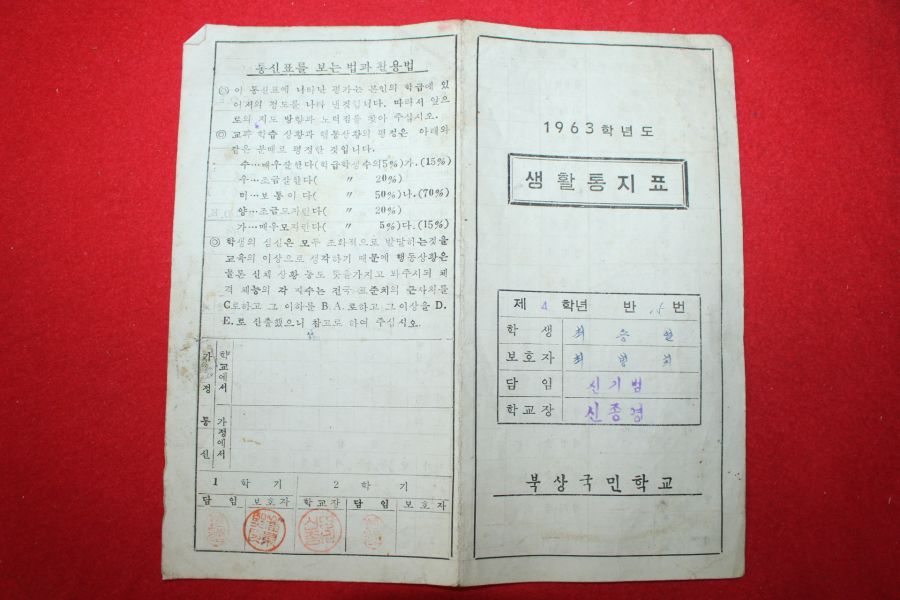 통신표를 보는 법과 활용법
◎ 이 통신표에 나타난 평가는 본인의 학급에 있
어서의 정도를 나타낸것입니다. 따라서 앞으
로의 지도 방향과 노력점을 찾아 주십시오.
◎ 교과 학습 상황과 행동상황의 평정은 아래와
같은 분배로 평정한 것입니다.
수…매우잘한다(학급학생수의5%)가. (15%)
우…조금잘한다( 〃 20%)
미…보통이다( 〃 50%)나. (70%)
양…조금모자란다( 〃 20%)
가…매우모자란다( 〃 5%)다. (15%)
◎ 학생의 심신은 모두 조화적으로 발달하는것을
교육의 이상으로 생각하기 때문에 행동상황은
물론 신체 상황 등도 뜻을가지고 봐주시되 체
격 체능의 각 지수는 전국 표준치의 근사치를
C로하고 그 이하를 B.A.로하고 그이상을 D.
E.로 산출했으니 참고로 하여 주십시오.
가정통신
학교에서
가정에서
1 학기 2 학기
담임 보호자 학교장 담임 보호자
1963학년도
생활통지표
제 4 학년 반 번
학생 최승
보호자 최병
담임 신기범
학교장 신종경
북상국민학교